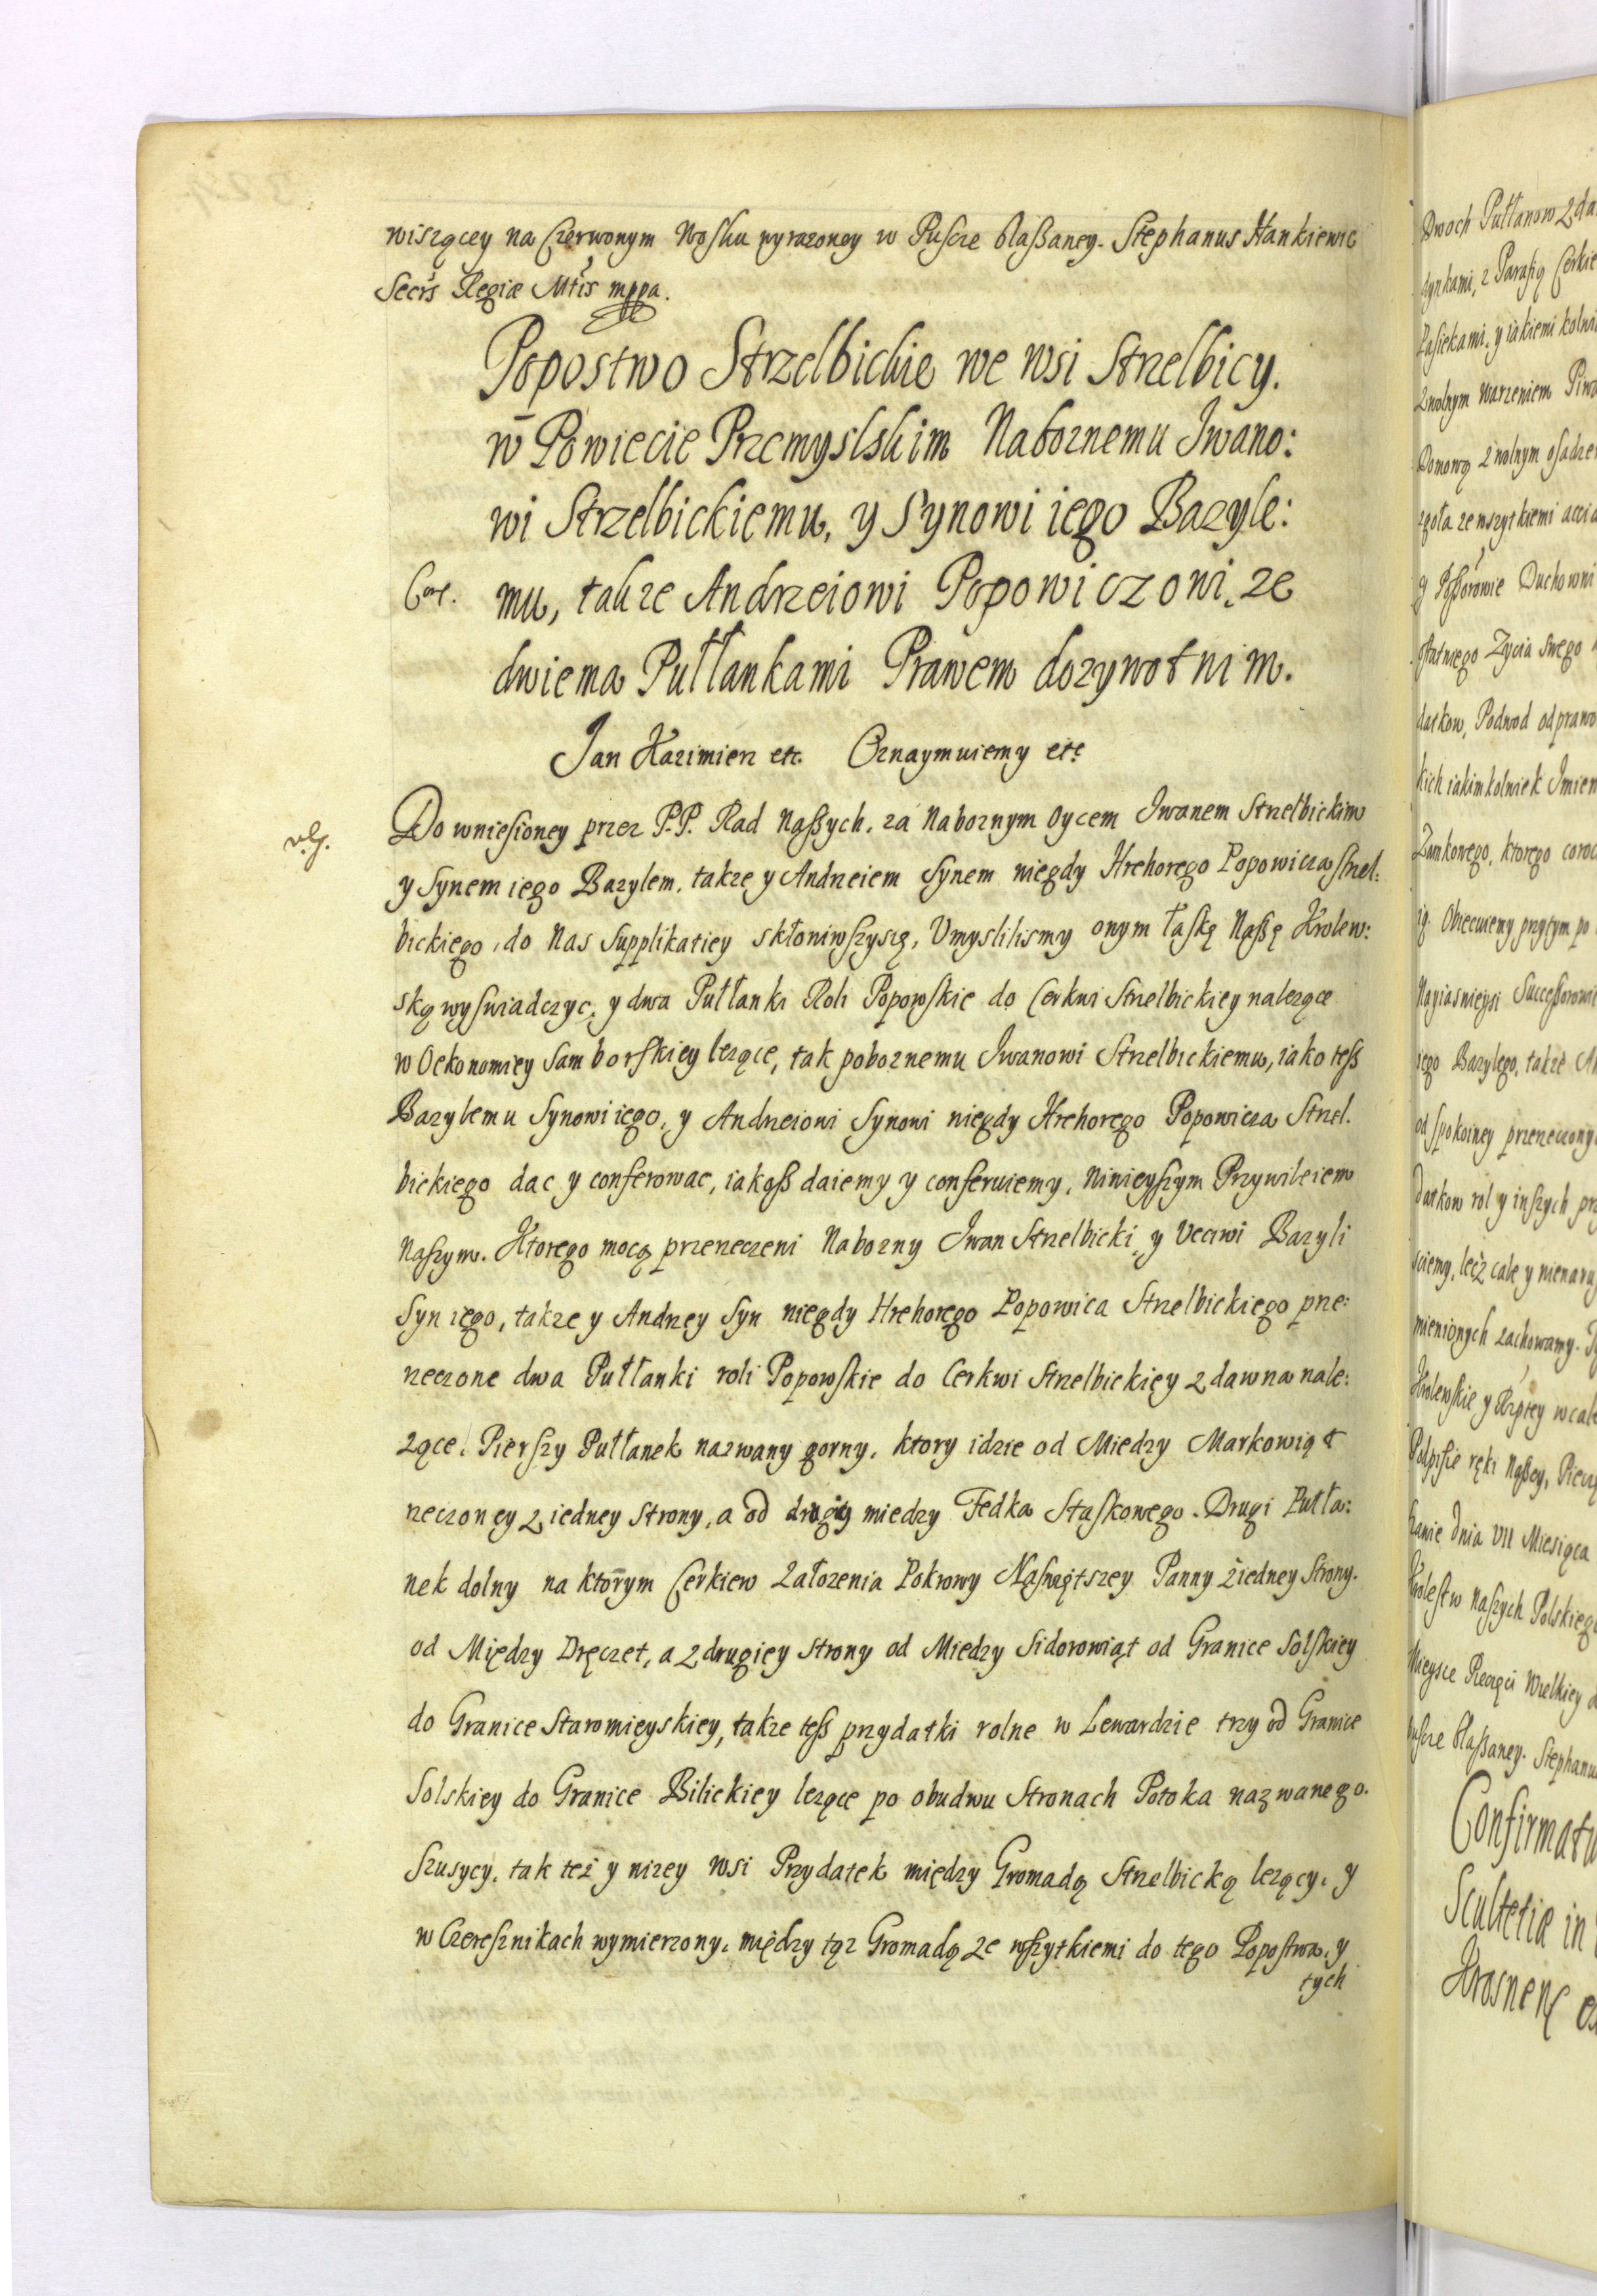 wiszącey na Czerwonym Wosku wyrazoney w Puscze blaszaney. Stephanus Hankiewic
Secrs Regiæ Mtis mppa.
Popostwo Strzelbickie we wsi Strzelbicy.
w Powiecie Przemyslskim Naboznemu Iwano:
wi Strzelbickiemu, y Synowi iego Bazyle:
mu, takze Andrzeiowi Popowiczowi, ze
dwiema Pułłankami Prawem dozywotnim.
Jan Kazimierz etc. Oznaymuiemy etc
Do wniesioney przez P.P. Rad Naszych, za Naboznym Oycem Iwanem Strzelbickim
y Synem iego Bazylem, takze y Andrzeiem Synem niegdy Hrehorego Popowicza Strzel:
bickiego, do Nas Supplikatiey skłoniwszysię, Vmyslilismy onym łaskę Naszę Krolew:
ską wyswiadczyc, y dwa Pułłanki Roli Popowskie do Cerkwi Strzelbickiey nalezące
w Oekonomiey Samborskiey lezące, tak poboznemu Iwanowi Strzelbickiemu, iako tesz
Bazylemu Synowi iego, y Andrzeiowi Synowi niegdy Hrehorego Popowicza Strzel.
bickiego dac y conferowac, iakosz daiemy y conferuiemy, Ninieyszym Przywileiem
Naszym. Ktorego mocą przerzeczeni Nabozny Iwan Strzelbicki, y Vcciwi Bazyli
Syn iego, takze y Andrzey Syn niegdy Hrehorego Popowica Strzelbickiego prze:
rzeczone dwa Pułłanki roli Popowskie do Cerkwi Strzelbickięy z dawna nale:
zące. Pierszy Pułłanek nazwany gorny, ktory idzie od Miedzy Markowiąt
rzeczoney z iedney strony, a od drugiey miedzy Fedka Staskowego. Drugi Pułła:
nek dolny na ktorym Cerkiew Załozenia Pokrowy Naswiętszey Panny z iedney Strony.
od Między Dręczet, a z drugiey strony od Miedzy Sidorowiąt od Granice Solskiey
do Granice Staromieyskiey, takze tesz przydatki rolne w Lewardzie trzy od Granice
Solskiey do Granice Bilickiey lezące po obudwu Stronach Potoka nazwanego.
Szusycy, tak też y nizey wsi Przydatek między Gromadą Strzelbicką lezący, y
w Czeresznikach wymierzony, między tąz Gromadą ze wszytkiemi do tego Popostwa, y
tych
Dwoch Pułłanow z da
dynkami, z Parafią Cerkie
Pasiekami, y iakiemi kolwi
z wolnym warzeniem Piwa
Domową z wolnym osadze
zgoła ze wszytkiemi
Duchowni
Zycia swego
datkow, Podwod odprawo
kich iakimkolwiek Imien
Zamkowego, ktorego coroc
Obiecuiemy przytym po
Nayiasnieysi Successorowi
iego Bazylego, takze An
od spokoiney przerzeczony
datkow rol y inszych prz
sciemy, lecz cale y nienaru
mienionych zachowamy.
Krolewskie y Rzptey wcale
Podpisie ręki Naszey, Piecz
dnia VII Miesiąca
Krolestw naszych Polskieg
Mieysce Pieczęci Wielkiey
Puscze blaszaney. Stephanu
Confirmatio
Scultetiæ in
Krosnen